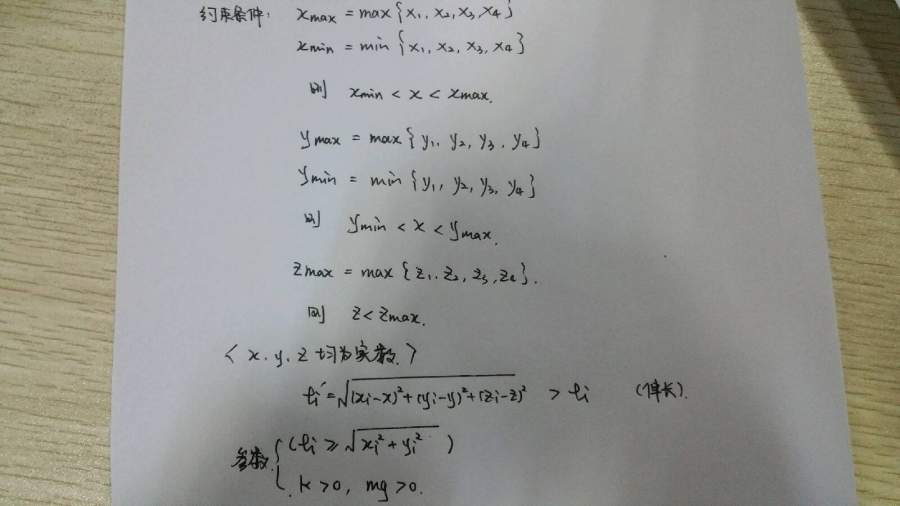 约束条件: xmax = max{x1, x2, x3, x4}
xmin = min{x1, x2, x3, x4}
则 xmin < x < xmax.
ymax = max{y1, y2, y3, y4}
ymin = min{y1, y2, y3, y4}
则 ymin < x < ymax.
zmax = max{z1, z2, z3, z4}.
则 z < zmax.
< x, y, z 均为实数. >
ti' = √(xi-x)²+(yi-y)²+(zi-z)² > ti (弹长).
参数 { (ti ≥ √xi²+yi² )
k > 0, mg > 0.